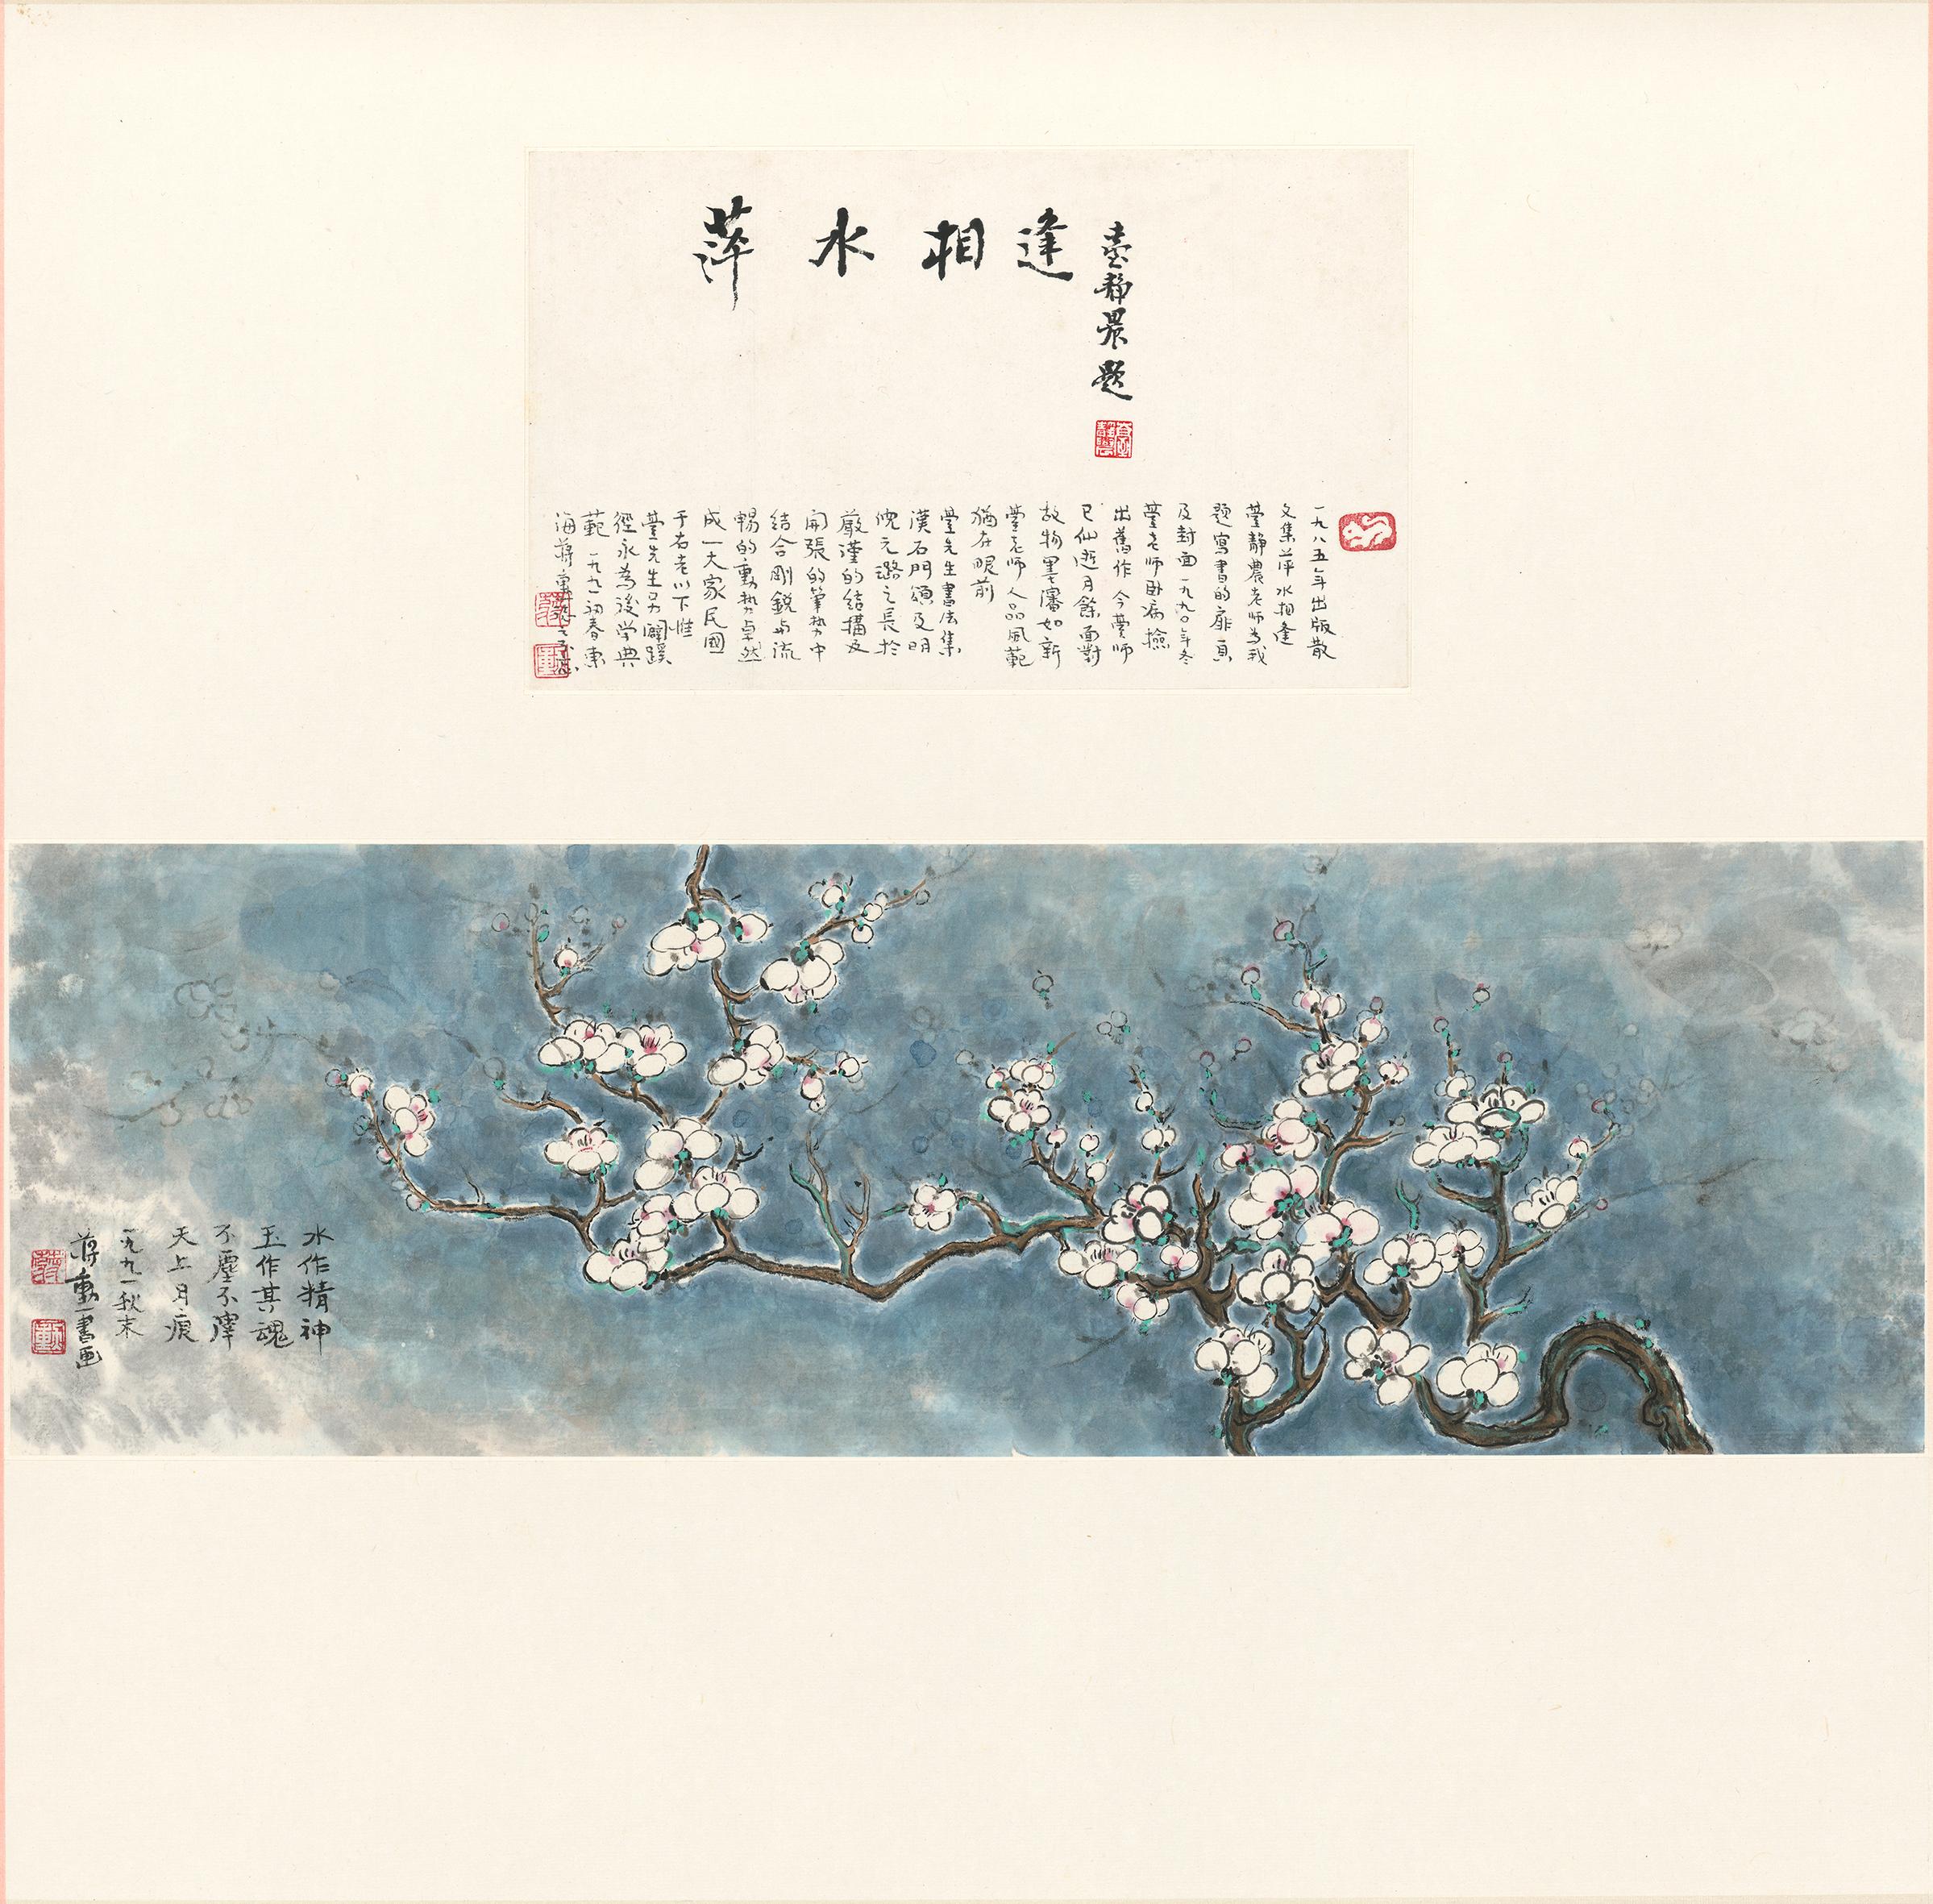 萍水相逢
臺靜農題
一九八五年出版散
文集萍水相逢
臺靜農老師為我
題寫書的扉頁
及封面一九九〇年冬
臺老師卧病撿
出舊作今臺師
已仙逝月餘面對
故物墨瀋如新
臺老師人品風範
猶在眼前
臺先生書法集
漢石門頌及明
倪元璐之長於
嚴謹的結構及
開張的筆勢中
結合剛銳与流
暢的動勢卓然
成一大家民國
于右老以下惟
臺先生另闢蹊
徑永為後学典
範一九九一初春東
海蔣勳
水作精神
玉作其魂
不塵不滓
天上月痕
一九九一秋末
蔣勳書画